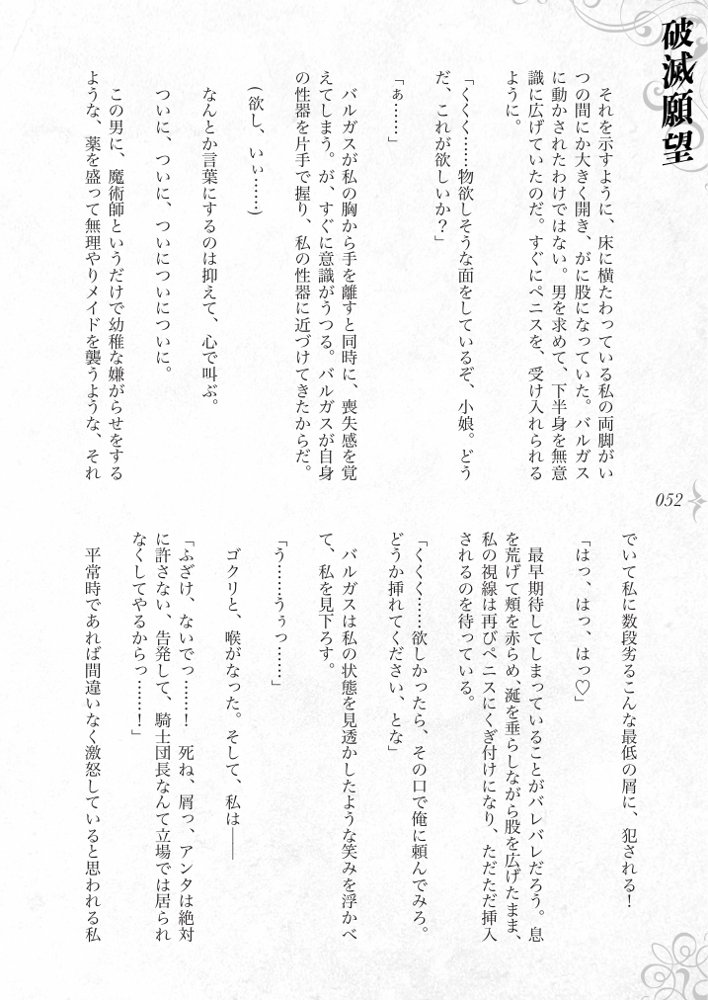 破滅願望
それを示すように、床に横たわっている私の両脚がい
つの間にか大きく開き、がに股になっていた。バルガス
に動かされたわけではない。男を求めて、下半身を無意
識に広げていたのだ。すぐにペニスを、受け入れられる
ように。
「くくく……物欲しそうな面をしているぞ、小娘。どう
だ、これが欲しいか?」
「ぁ……」
バルガスが私の胸から手を離すと同時に、喪失感を覚
えてしまう。が、すぐに意識がうつる。バルガスが自身
の性器を片手で握り、私の性器に近づけてきたからだ。
(欲し、いぃ……)
なんとか言葉にするのは抑えて、心で叫ぶ。
ついに、ついに、ついについについに。
この男に、魔術師というだけで幼稚な嫌がらせをする
ような、薬を盛って無理やりメイドを襲うような、それ
でいて私に数段劣るこんな最低の屑に、犯される!
「はっ、はっ、はっ♡」
最早期待してしまっていることがバレバレだろう。息
を荒げて頬を赤らめ、涎を垂らしながら股を広げたまま、
私の視線は再びペニスにくぎ付けになり、ただただ挿入
されるのを待っている。
「くくく……欲しかったら、その口で俺に頼んでみろ。
どうか挿れてください、とな」
バルガスは私の状態を見透かしたような笑みを浮かべ
て、私を見下ろす。
「う……うぅっ……」
ゴクリと、喉がなった。そして、私は――
「ふざけ、ないでっ……! 死ね、屑っ、アンタは絶対
に許さない、告発して、騎士団長なんて立場では居られ
なくしてやるからっ……!」
平常時であれば間違いなく激怒していると思われる私
052